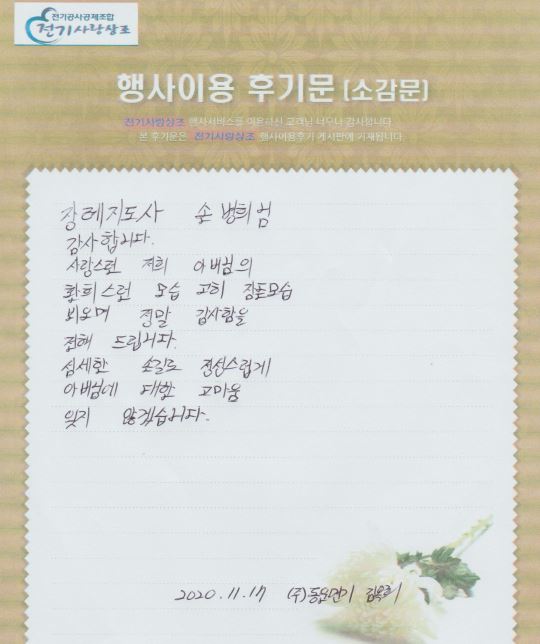 전기공사공제조합
전기사랑상조
행사이용 후기문 [소감문]
전기사랑상조 행사서비스를 이용하신 고객님 너무나 감사합니다.
본 후기문은 전기사랑상조 행사이용후기 게시판에 기재됩니다.
장례지도사 손
감사합니다.
사랑스런 저희 아버님의
모습 고히
뵈오며 정말 감사함을
전해 드립니다.
섬세한 손길로 헌신스럽게
아버님에 대한 고마움
잊지 않겠습니다.
2020.11.17 (주)